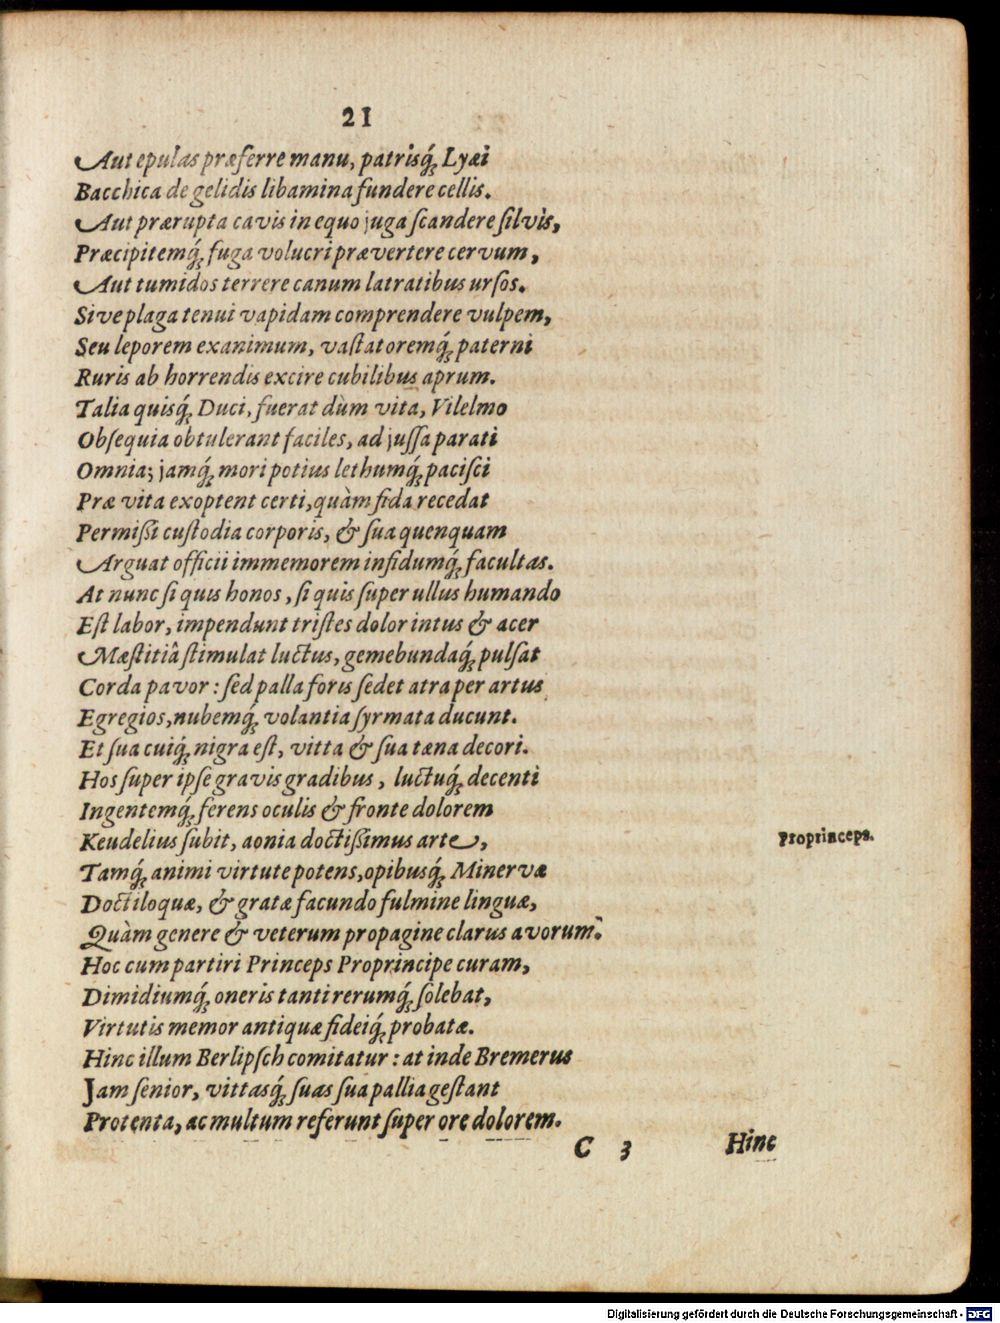 21
Aut epulas præferre manu, patrisq́; Lyæi
Bacchica de gelidis libamina fundere cellis.
Aut prærupta cavis in equo juga ſcandere ſilvis,
Præcipitemq́; fuga volucri prævertere cervum,
Aut tumidos terrere canum latratibus urſos.
Sive plaga tenui vapidam comprendere vulpem,
Seu leporem exanimum, vaſtatoremq́; paterni
Ruris ab horrendis excire cubilibus aprum.
Talia quisq́; Duci, fuerat dùm vita, Vilelmo
Obſequia obtulerant faciles, ad juſſa parati
Omnia; jamq́; mori potius lethumq́; paciſci
Præ vita exoptent certi, quàm fida recedat
Permißi cuſtodia corporis, & ſua quenquam
Arguat officii immemorem infidumq́; facultas.
At nunc ſi quis honos, ſi quis ſuper ullus humando
Eſt labor, impendunt triſtes dolor intus & acer
Mæſtitiâ ſtimulat luctus, gemebundaq́; pulſat
Corda pavor: ſed palla foris ſedet atra per artus
Egregios, nubemq́; volantia ſyrmata ducunt.
Et ſua cuiq́; nigra eſt, vitta & ſua tæna decori.
Hos ſuper ipſe gravis gradibus, luctuq́; decenti
Ingentemq́; ferens oculis & fronte dolorem
Keudelius ſubit, aonia doctißimus arte,
Proprinceps.
Tamq́; animi virtute potens, opibusq́; Minervæ
Doctiloquæ, & gratæ facundo fulmine linguæ,
Quàm genere & veterum propagine clarus avorum.
Hoc cum partiri Princeps Proprincipe curam,
Dimidiumq́; oneris tanti rerumq́; ſolebat,
Virtutis memor antiquæ fideiq́; probatæ.
Hinc illum Berlipſch comitatur: at inde Bremerus
Jam ſenior, vittasq́; ſuas ſua pallia geſtant
Protenta, ac multum referunt ſuper ore dolorem.
C 3 Hinc
Digitalisierung gefördert durch die Deutsche Forschungsgemeinschaft - DFG